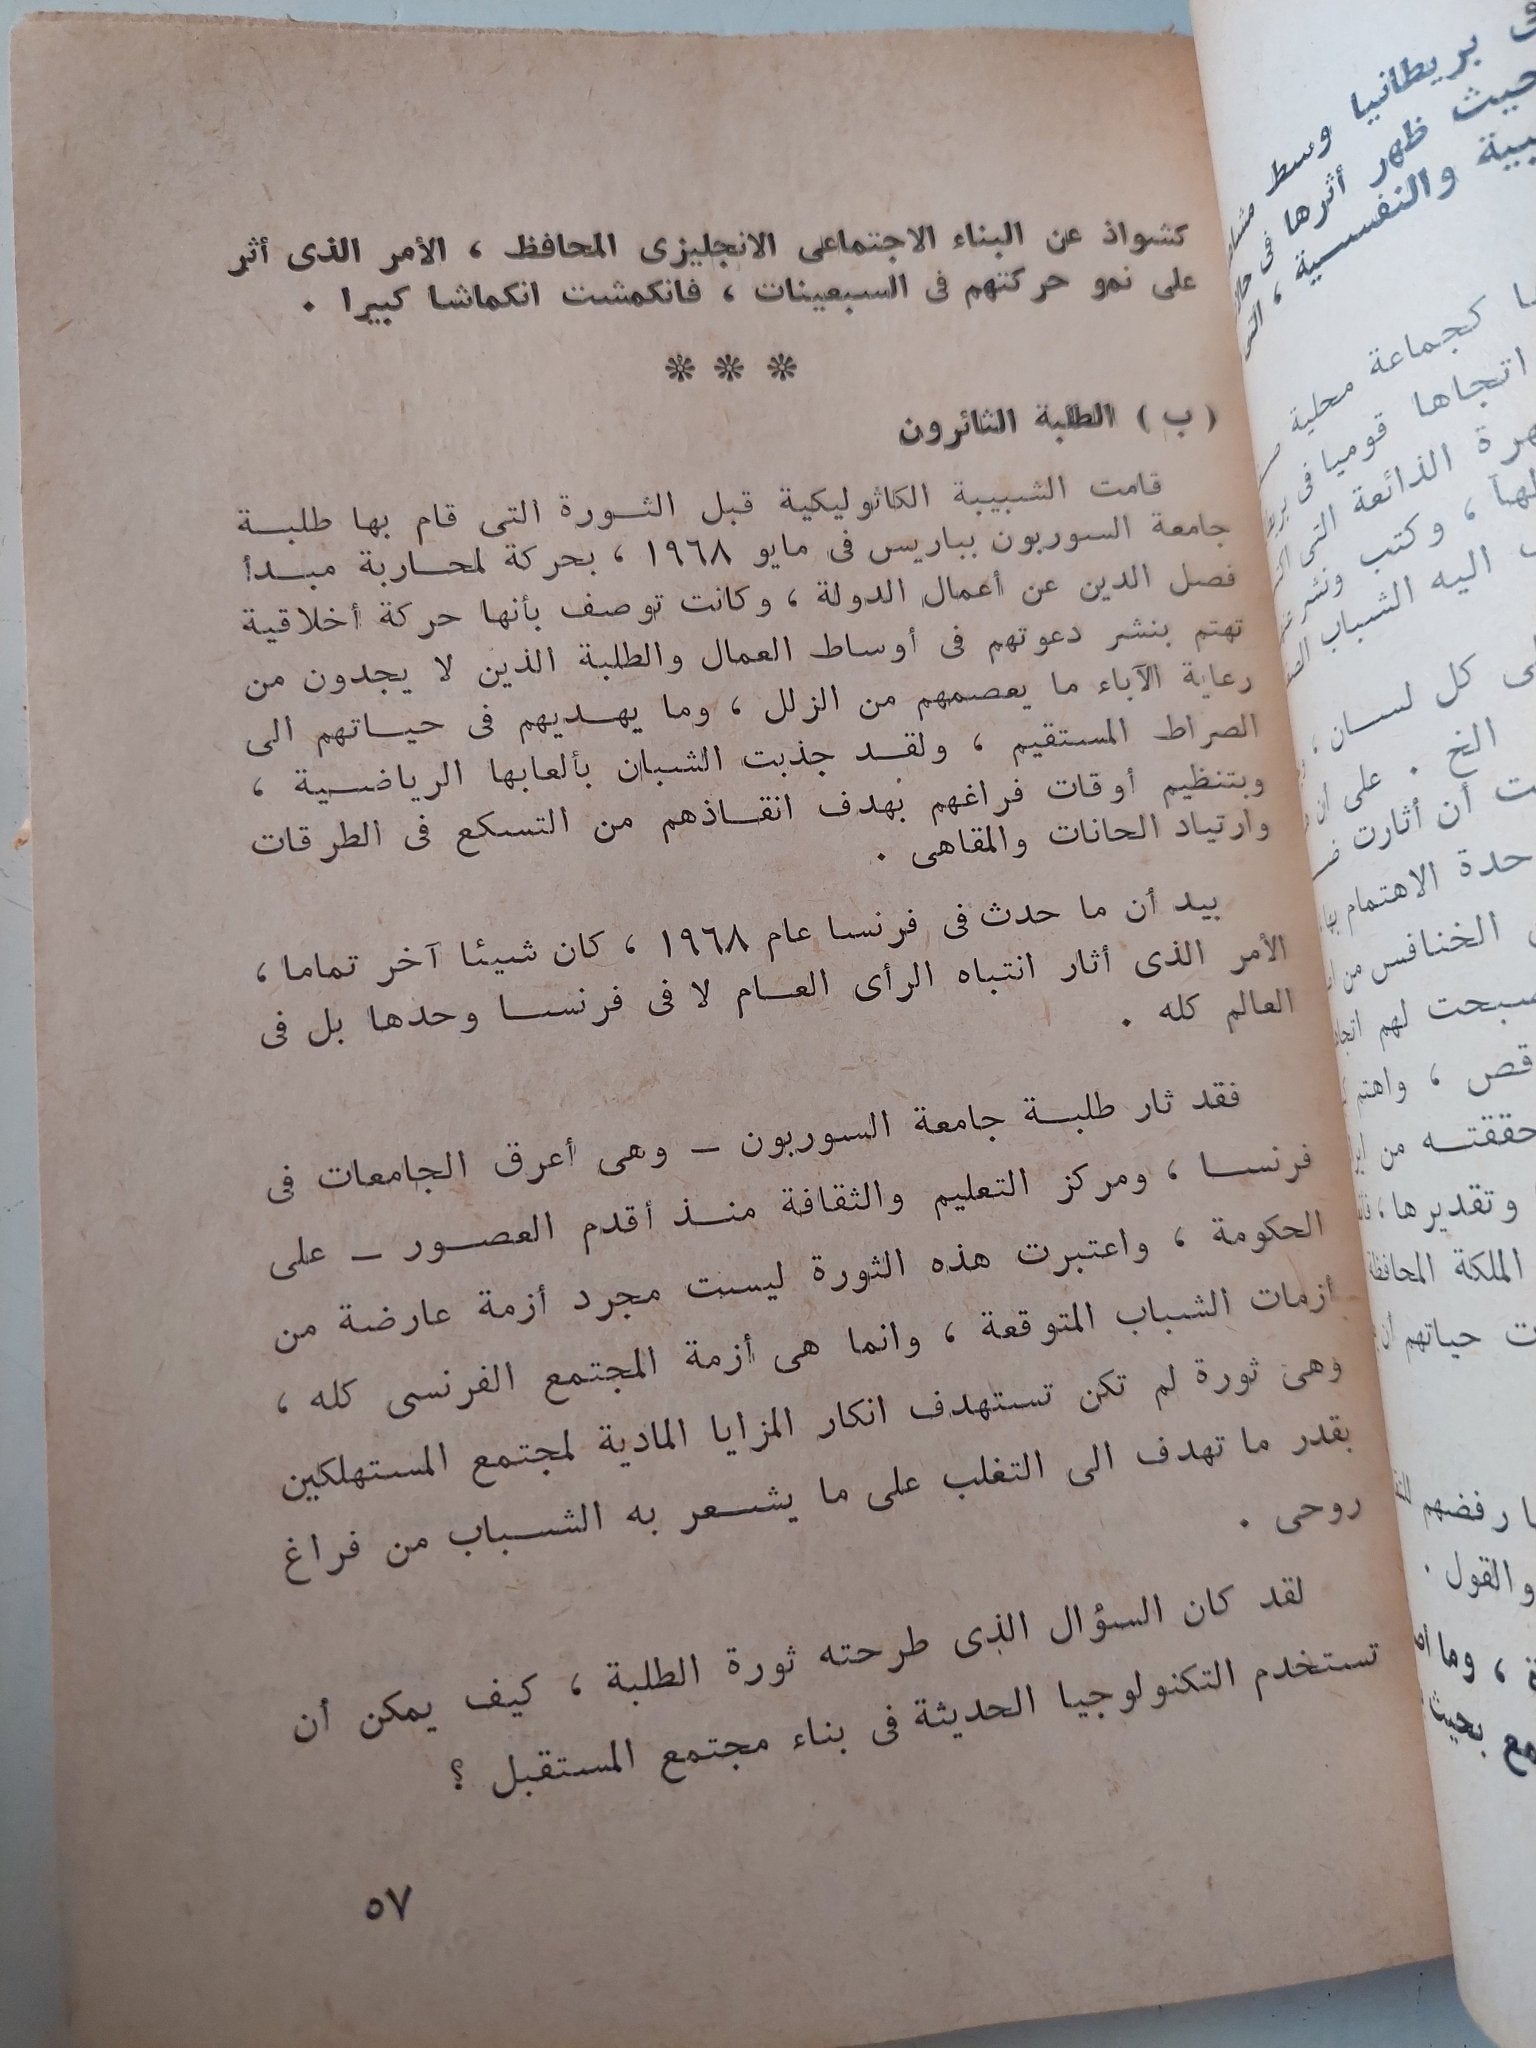 كشواذ عن البناء الاجتماعى الانجليزى المحافظ ، الأمر الذى أثر
على نمو حركتهم فى السبعينات ، فانكمشت انكماشا كبيرا .
❊ ❊ ❊
( ب ) الطلبة الثائرون
قامت الشبيبة الكاثوليكية قبل الثورة التى قام بها طلبة
جامعة السوربون بباريس فى مايو ١٩٦٨ ، بحركة لمحاربة مبدأ
فصل الدين عن أعمال الدولة ، وكانت توصف بأنها حركة أخلاقية
تهتم بنشر دعوتهم فى أوساط العمال والطلبة الذين لا يجدون من
رعاية الآباء ما يعصمهم من الزلل ، وما يهديهم فى حياتهم الى
الصراط المستقيم ، ولقد جذبت الشبان بألعابها الرياضية ،
وبتنظيم أوقات فراغهم بهدف انقاذهم من التسكع فى الطرقات
وارتياد الحانات والمقاهى .
بيد أن ما حدث فى فرنسا عام ١٩٦٨ ، كان شيئا آخر تماما ،
الأمر الذى أثار انتباه الرأى العام لا فى فرنسا وحدها بل فى
العالم كله .
فقد ثار طلبة جامعة السوربون – وهى أعرق الجامعات فى
فرنسا ، ومركز التعليم والثقافة منذ أقدم العصور – على
الحكومة ، واعتبرت هذه الثورة ليست مجرد أزمة عارضة من
أزمات الشباب المتوقعة ، وانما هى أزمة المجتمع الفرنسى كله ،
وهى ثورة لم تكن تستهدف انكار المزايا المادية لمجتمع المستهلكين
بقدر ما تهدف الى التغلب على ما يشعر به الشباب من فراغ
روحى .
لقد كان السؤال الذى طرحته ثورة الطلبة ، كيف يمكن أن
تستخدم التكنولوجيا الحديثة فى بناء مجتمع المستقبل ؟
٥٧
بريطانيا وسط
حيث ظهر أثرها فى
والنفسية ،
كجماعة محلية
اتجاها قوميا فى
الذائعة التى
، وكتب ونشر
اليه الشباب
كل لسان ،
الخ . على أن
أن أثارت
حدة الاهتمام بها
الخنافس من
لهم
، واهتم
من
وتقديرها ،
المملكة المحافظة
حياتهم أن
رفضهم
والقول .
، وما
بحيث